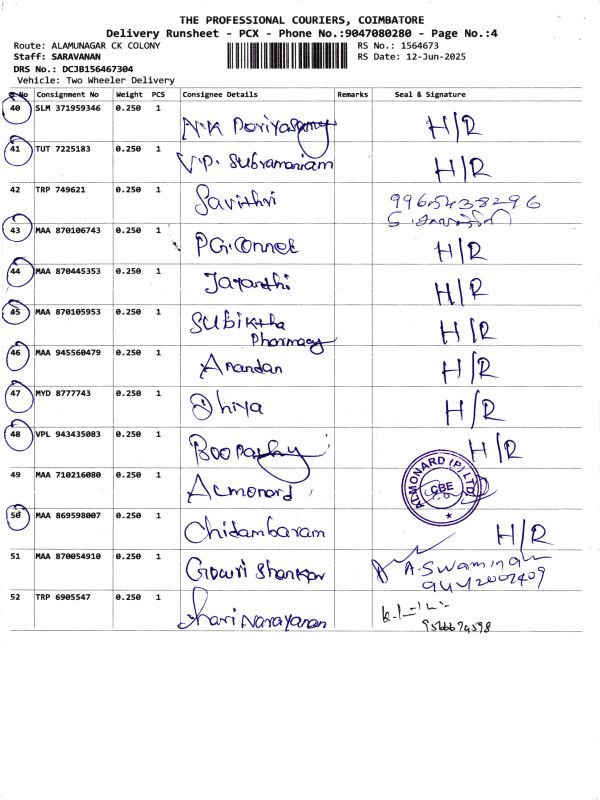 THE PROFESSIONAL COURIERS, COIMBATORE
Delivery Runsheet - PCX - Phone No.:9047080280 - Page No.:4
Route: ALAMUNAGAR CK COLONY
RS No.: 1564673
Staff: SARAVANAN
RS Date: 12-Jun-2025
DRS No.: DCJB156467304
Vehicle: Two Wheeler Delivery
S.No Consignment No Weight PCS Consignee Details Remarks Seal & Signature
40 SLM 371959346 0.250 1 N.K Periyasamy H/R
41 TUT 7225183 0.250 1 V.P. Subramaniam H/R
42 TRP 749621 0.250 1 Savithri 9965438296
43 MAA 870106743 0.250 1 PG.Connet H/R
44 MAA 870445353 0.250 1 Jayanthi H/R
45 MAA 870105953 0.250 1 Subiktha Pharmacy H/R
46 MAA 945560479 0.250 1 Anandan H/R
47 MYD 8777743 0.250 1 Dhiya H/R
48 VPL 943435083 0.250 1 Boopathy H/R
49 MAA 710216080 0.250 1 Almonard ALMONARD (P) LTD CBE
50 MAA 869598007 0.250 1 Chidambaram H/R
51 MAA 870054910 0.250 1 Gowri Shankar A.Swaminathan
9442002409
52 TRP 6905547 0.250 1 Hari Narayanan
9566674598